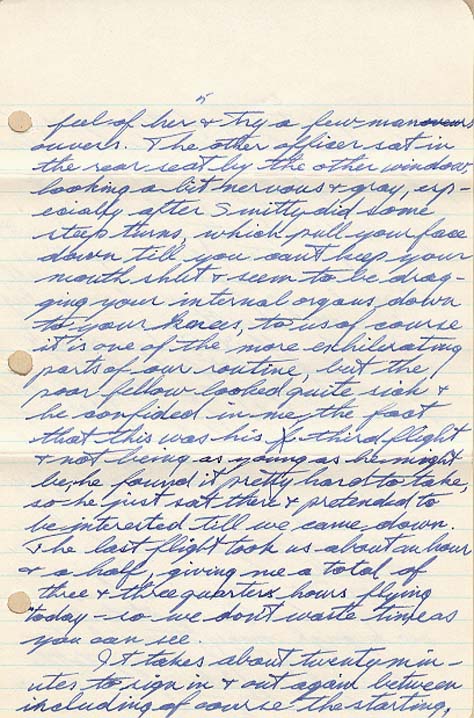 5
feel of her & try a few manouvers
ouvers. The other officer sat in
the rear seat by the other window,
looking a bit nervous & gray, esp-
ecially after Smitty did some
steep turns, which pull your face
down till you can't keep your
mouth shut & seem to be drag-
ging your internal organs down
to your knees, to us of course
it is one of the more exhilerating
parts of our routine, but the
poor fellow looked quite sick &
he confided in me, the fact
that this was his third flight
& not being as young as he might
be, he found it pretty hard to take,
so he just sat there & pretended to
be interested till we came down.
The last flight took us about an hour
& a half, giving me a total of
three & three quarters hours flying
today - so we don't waste time as
you can see.
It takes about twenty min-
utes to sign in & out again between
including of course the starting,